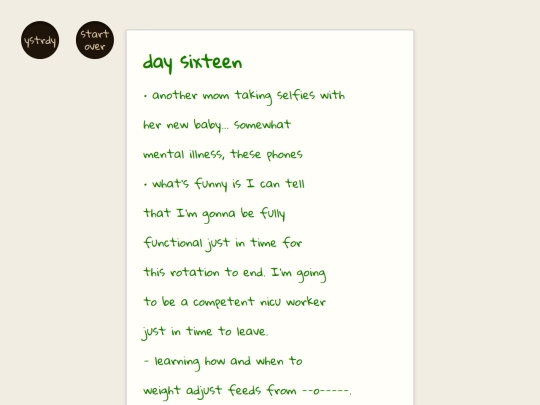 ystrdy
start
over
day sixteen
• another mom taking selfies with
her new baby... somewhat
mental illness, these phones
• what's funny is I can tell
that I'm gonna be fully
functional just in time for
this rotation to end. I'm going
to be a competent nicu worker
just in time to leave.
- learning how and when to
weight adjust feeds from --o-----.